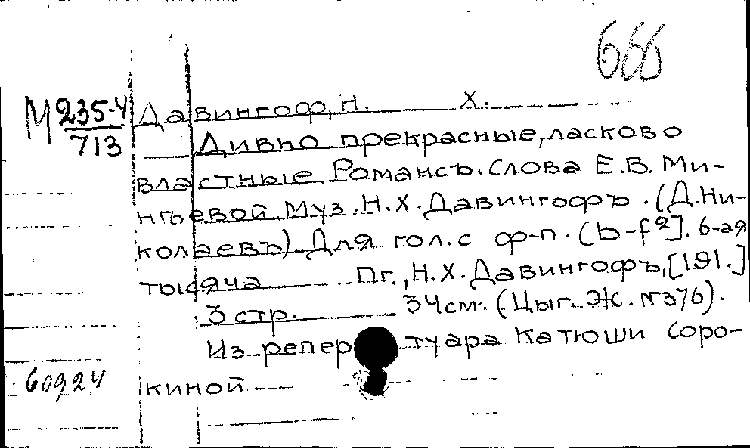 666
М 235-4 Давингоф, Н. Х.
713 Дивно прекрасные, ласково
властные Романсъ. Слова Е.В. Ми-
нгьевой Муз. Н.Х. Давингофъ. (Д. Ни-
колаевъ) Для гол. с ф-п. (b-f²]. 6-ая
тысяча Пг., Н.Х. Давингофъ, [191.]
3 стр. 34см. (Цыг. Ж. №376).
Из репертуара Катюши Соро-
60924 киной